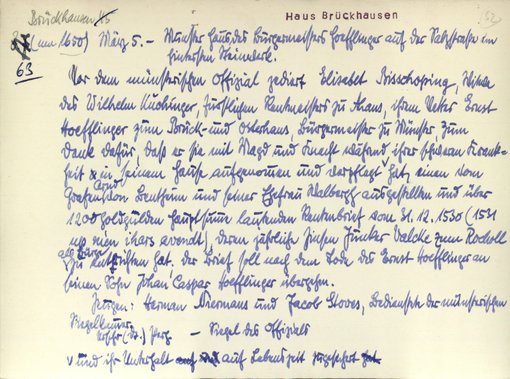 Haus Brückhausen
Brückhausen
(um 1650) März 5. – Münster Haus des Bürgermeisters Hoefflinger auf der Salzstraße im
63 finsteren Steinwerk.
Vor dem münsterischen Offizial zediert Elisabet Bisschoping, Witwe
des Wilhelm Küchinger, fürstlichen Rentmeisters zu Ahaus, ihrem Vetter Ernst
Hoefflinger zum Brück- und Osterhaus, Bürgermeister zu Münster, zum
Dank dafür, daß er sie mit Magd und Knecht während ihrer schweren Krank-
heit in seinem Hause aufgenommen und verpflegt hat, v einen vom
Grafen Arnd von Bentheim und seiner Ehefrau Walbergh ausgestellten und über
1200 Goldgulden Hauptsumme lautenden Rentenbrief vom 31.12.1530 (1531
up nien ihars avendt), deren jährliche Zinsen Junker Valcke zum Rockell
als Bürge zu entrichten hat. Der Brief soll nach dem Tode des Ernst Hoefflinger an
seinen Sohn Johan Caspar Hoefflinger übergehn.
Zeugen: Herman Niermans und Jacob Stoves, Bedienstete der münsterischen
Siegelkammer
(dt.) Perg. – Siegel des Offizials
v und ihr Unterhalt auf Lebenszeit zugesichert hat